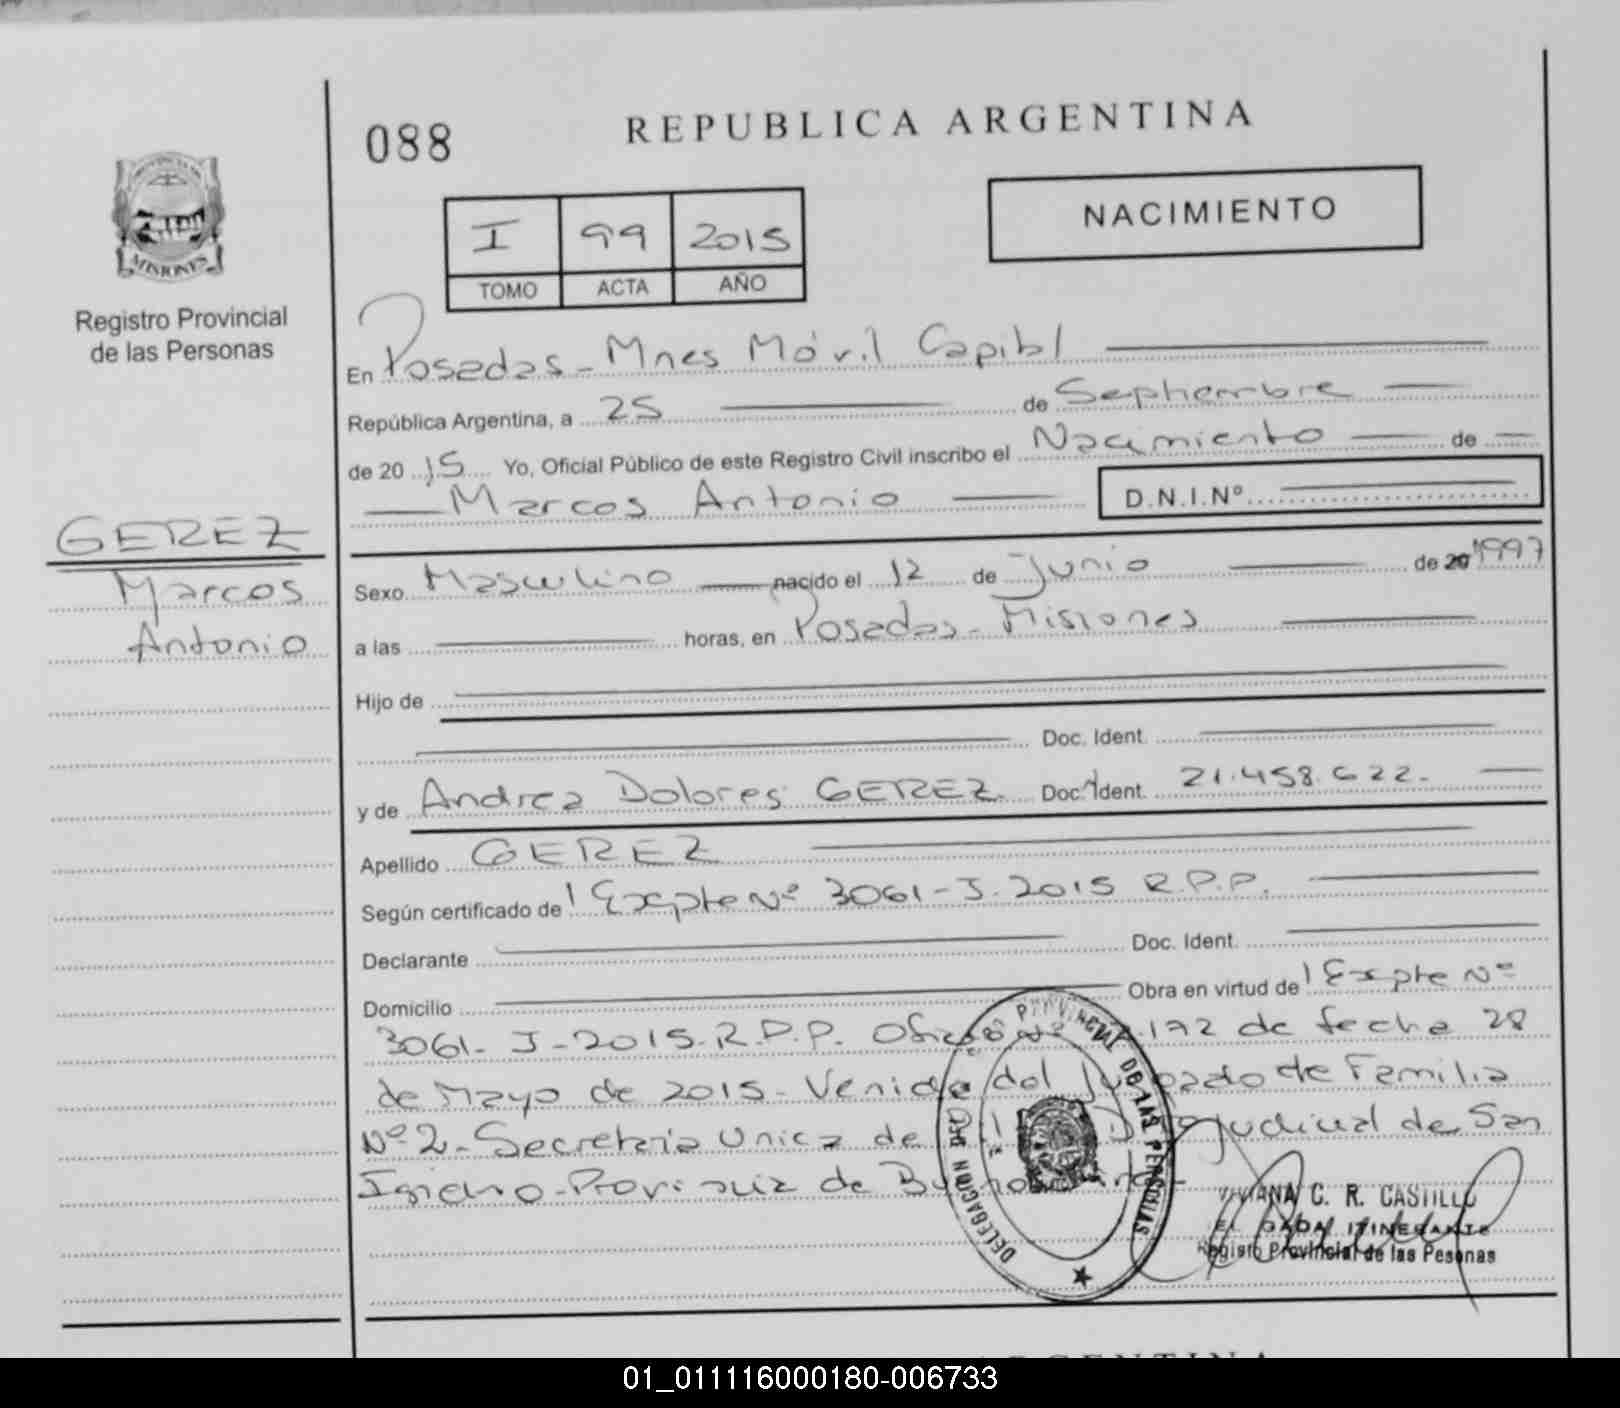 088
REPUBLICA ARGENTINA
PROVINCIA DE
MISIONES
Registro Provincial
de las Personas
I 99 2015
TOMO ACTA AÑO
NACIMIENTO
En Posadas - Mnes Móvil Capital
República Argentina, a 25 de Septiembre
de 20 15 Yo, Oficial Público de este Registro Civil inscribo el Nacimiento de
Marcos Antonio D.N.I.Nº
GEREZ
Marcos
Antonio
Sexo Masculino nacido el 12 de Junio de 20 1997
a las horas, en Posadas - Misiones
Hijo de
Doc. Ident.
y de Andrea Dolores GEREZ Doc. Ident. 21.458.622.
Apellido GEREZ
Según certificado de Expte Nº 3061-J-2015 R.P.P.
Declarante Doc. Ident.
Domicilio Obra en virtud de Expte Nº
3061- J-2015-R.P.P. 172 de fecha 28
de Mayo de 2015- Venida del Juzgado de Familia
Nº2- Secretaria Unica de Judicial de San
Isidro-Provincia de Buenos
DELEGACION DEL PROVINCIAL DE LAS PERSONAS
VIVIANA C. R. CASTILLO
ITINERANTE
Registo Provincial de las Pesonas
ARGENTINA
01_011116000180-006733